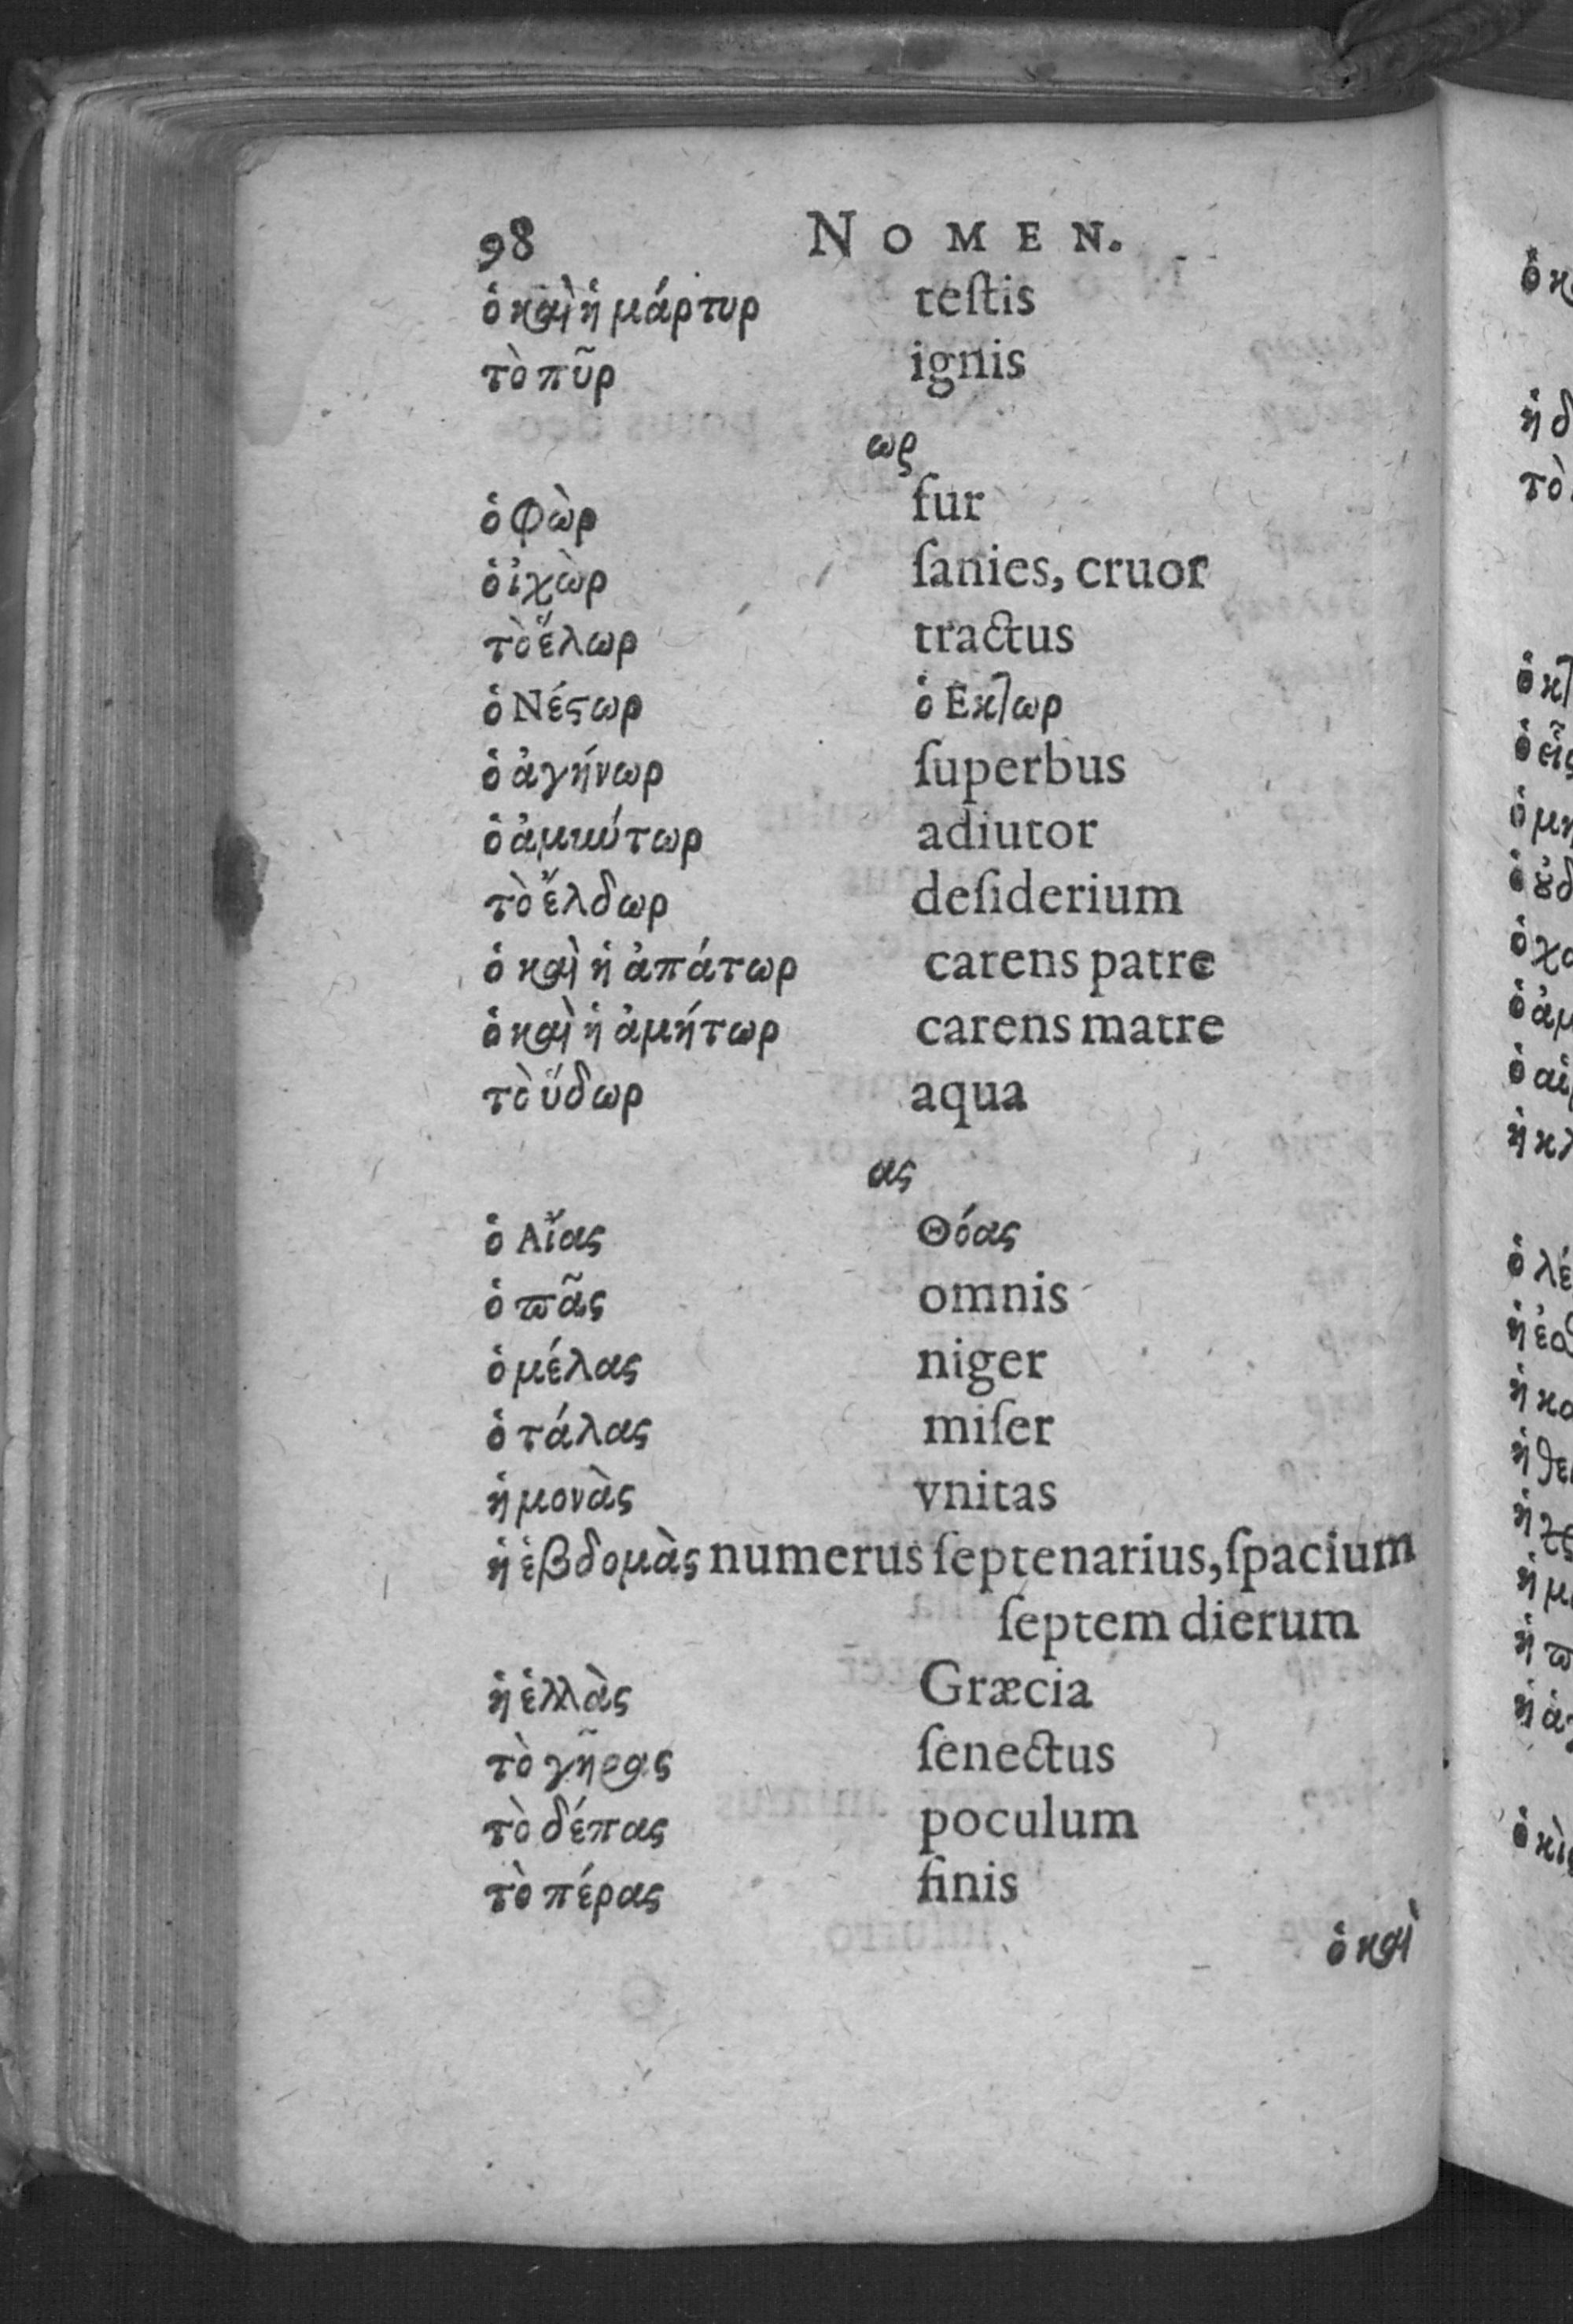 98 NOMEN.
ὁ καὶ ἡ μάρτυρ teſtis
τὸ πῦρ ignis
ωρ
ὁ φὼρ fur
ὁ ἰχὼρ ſanies, cruor
τὸ ἕλωρ tractus
ὁ Νέϛωρ ὁ Εκτωρ
ὁ ἀγήνωρ ſuperbus
ὁ ἀμυύτωρ adiutor
τὸ ἔλδωρ deſiderium
ὁ καὶ ἡ ἀπάτωρ carens patre
ὁ καὶ ἡ ἀμήτωρ carens matre
τὸ ὕδωρ aqua
ας
ὁ Αἴας Θόας
ὁ πᾶς omnis
ὁ μέλας niger
ὁ τάλας miſer
ἡ μονὰς vnitas
ἡ ἑβδομὰς numerus ſeptenarius, ſpacium
ſeptem dierum
ἡ ἑλλὰς Græcia
τὸ γῆρας ſenectus
τὸ δέπας poculum
τὸ πέρας finis
ὁ καὶ